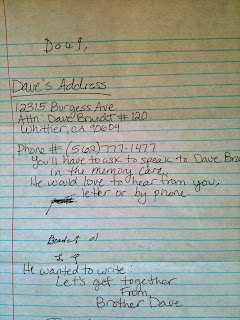 Doug,
Dave's Address
12315 Burgess Ave
Attn: Dave Brandt #120
Whittier, CA 90604
Phone # (562) 777-1477
You'll have to ask to speak to Dave Bra
in the memory care.
He would love to hear from you,
letter or by phone.
He wanted to write:
Let's get together
From,
Brother Dave